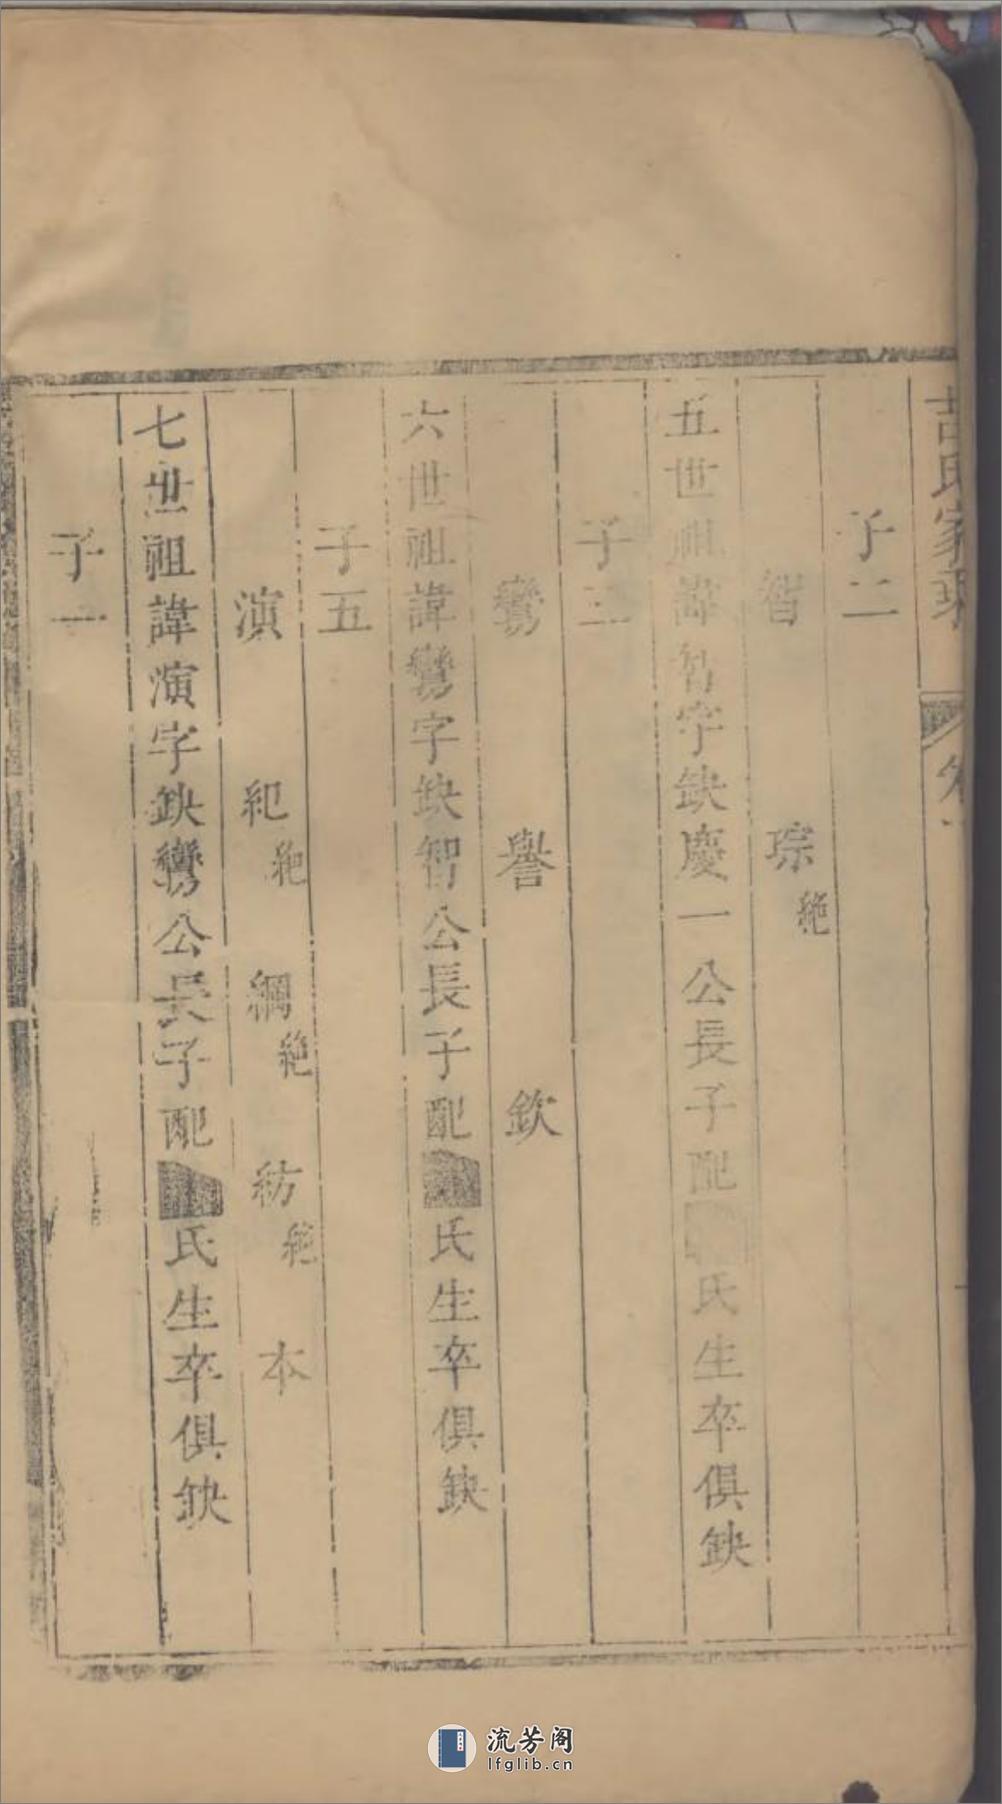 吉氏家
卷一
子二
智 琮絶
五世祖諱智字缺慶一公長子配 氏生卒俱缺
子三
鸞 譽 欽
六世祖諱鸞字缺智公長子配 氏生卒俱缺
子五
演 紀絶 綱絶 紡絶 本
七世祖諱演字缺鸞公長子配 氏生卒俱缺
子一
流芳阁
lfglib.cn